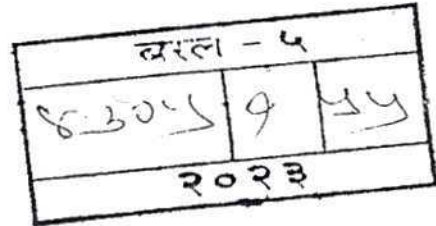 बरल - ५
४३०५ १ ५५
२०२३